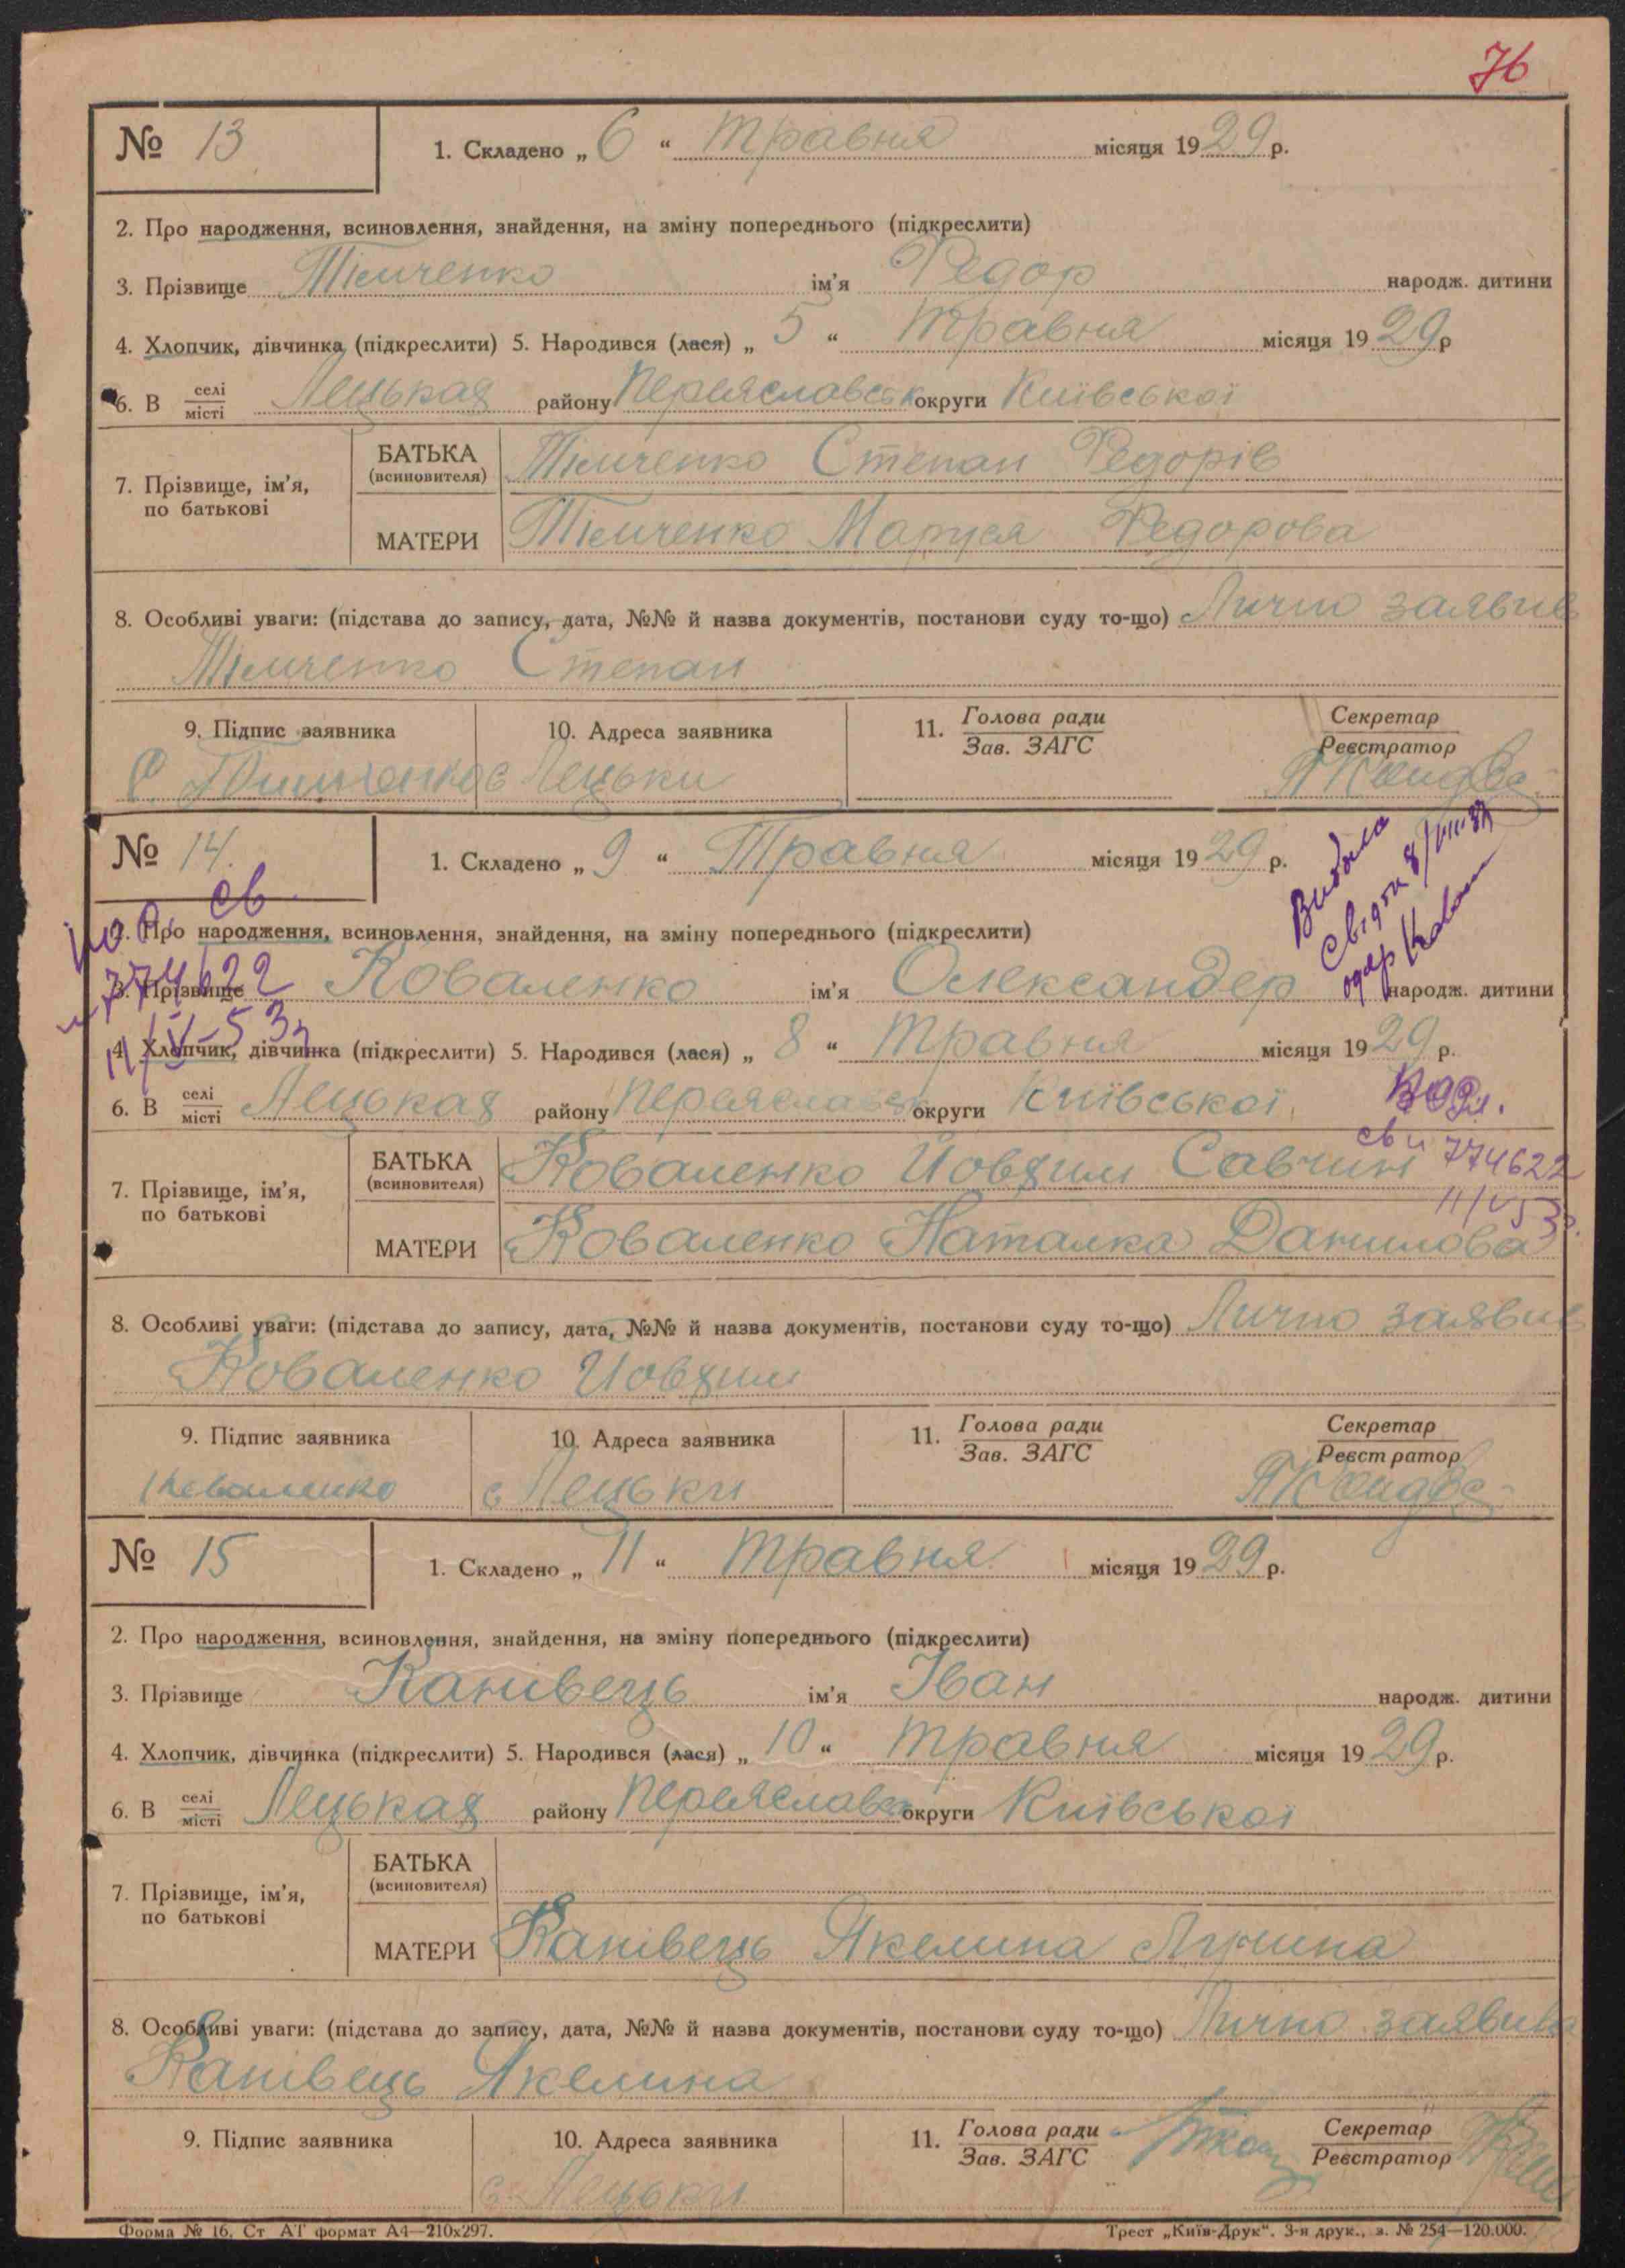 76
№ 13
1. Складено „6“ Травня місяця 1929 р.
2. Про народження, всиновлення, знайдення, на зміну попереднього (підкреслити)
3. Прізвище Тімченко ім'я Федор народж. дитини
4. Хлопчик, дівчинка (підкреслити) 5. Народився (лася) „5“ Травня місяця 1929 р
6. В селі/місті Лецьках району Переяславськ округи Київської
7. Прізвище, ім'я, по батькові
БАТЬКА (всиновителя) Тімченко Степан Федорів
МАТЕРИ Тімченко Маруся Федорова
8. Особливі уваги: (підстава до запису, дата, №№ й назва документів, постанови суду то-що) Лично заявив
Тімченко Степан
9. Підпис заявника 10. Адреса заявника 11. Голова ради/Зав. ЗАГС Секретар/Реєстратор
с Лецьки
№ 14.
1. Складено „9“ Травня місяця 1929 р.
Видала
свідтв 8/
одер Ковал
св
2. Про народження, всиновлення, знайдення, на зміну попереднього (підкреслити)
774622
3. Прізвище Коваленко ім'я Олександер народж. дитини
11/V-53
4. Хлопчик, дівчинка (підкреслити) 5. Народився (лася) „8“ Травня місяця 1929 р.
6. В селі/місті Лецьках району Переяславськ округи Київської
св 774622
11/V 53
7. Прізвище, ім'я, по батькові
БАТЬКА (всиновителя) Коваленко Йовхим Савчин
МАТЕРИ Коваленко Наталка Данилова
8. Особливі уваги: (підстава до запису, дата, №№ й назва документів, постанови суду то-що) Лично заявив
Коваленко Йовхим
9. Підпис заявника 10. Адреса заявника 11. Голова ради/Зав. ЗАГС Секретар/Реєстратор
Коваленко с Лецьки
№ 15
1. Складено „11“ Травня місяця 1929 р.
2. Про народження, всиновлення, знайдення, на зміну попереднього (підкреслити)
3. Прізвище Канівець ім'я Іван народж. дитини
4. Хлопчик, дівчинка (підкреслити) 5. Народився (лася) „10“ Травня місяця 1929 р.
6. В селі/місті Лецьках району Переяславськ округи Київської
7. Прізвище, ім'я, по батькові
БАТЬКА (всиновителя)
МАТЕРИ Канівець Якелина
8. Особливі уваги: (підстава до запису, дата, №№ й назва документів, постанови суду то-що) Лично заявила
Канівець Якелина
9. Підпис заявника 10. Адреса заявника 11. Голова ради/Зав. ЗАГС Секретар/Реєстратор
с. Лецьки
Форма № 16. Ст АТ формат А4—210x297.
Трест „Київ-Друк“. 3-я друк., з. № 254—120.000.